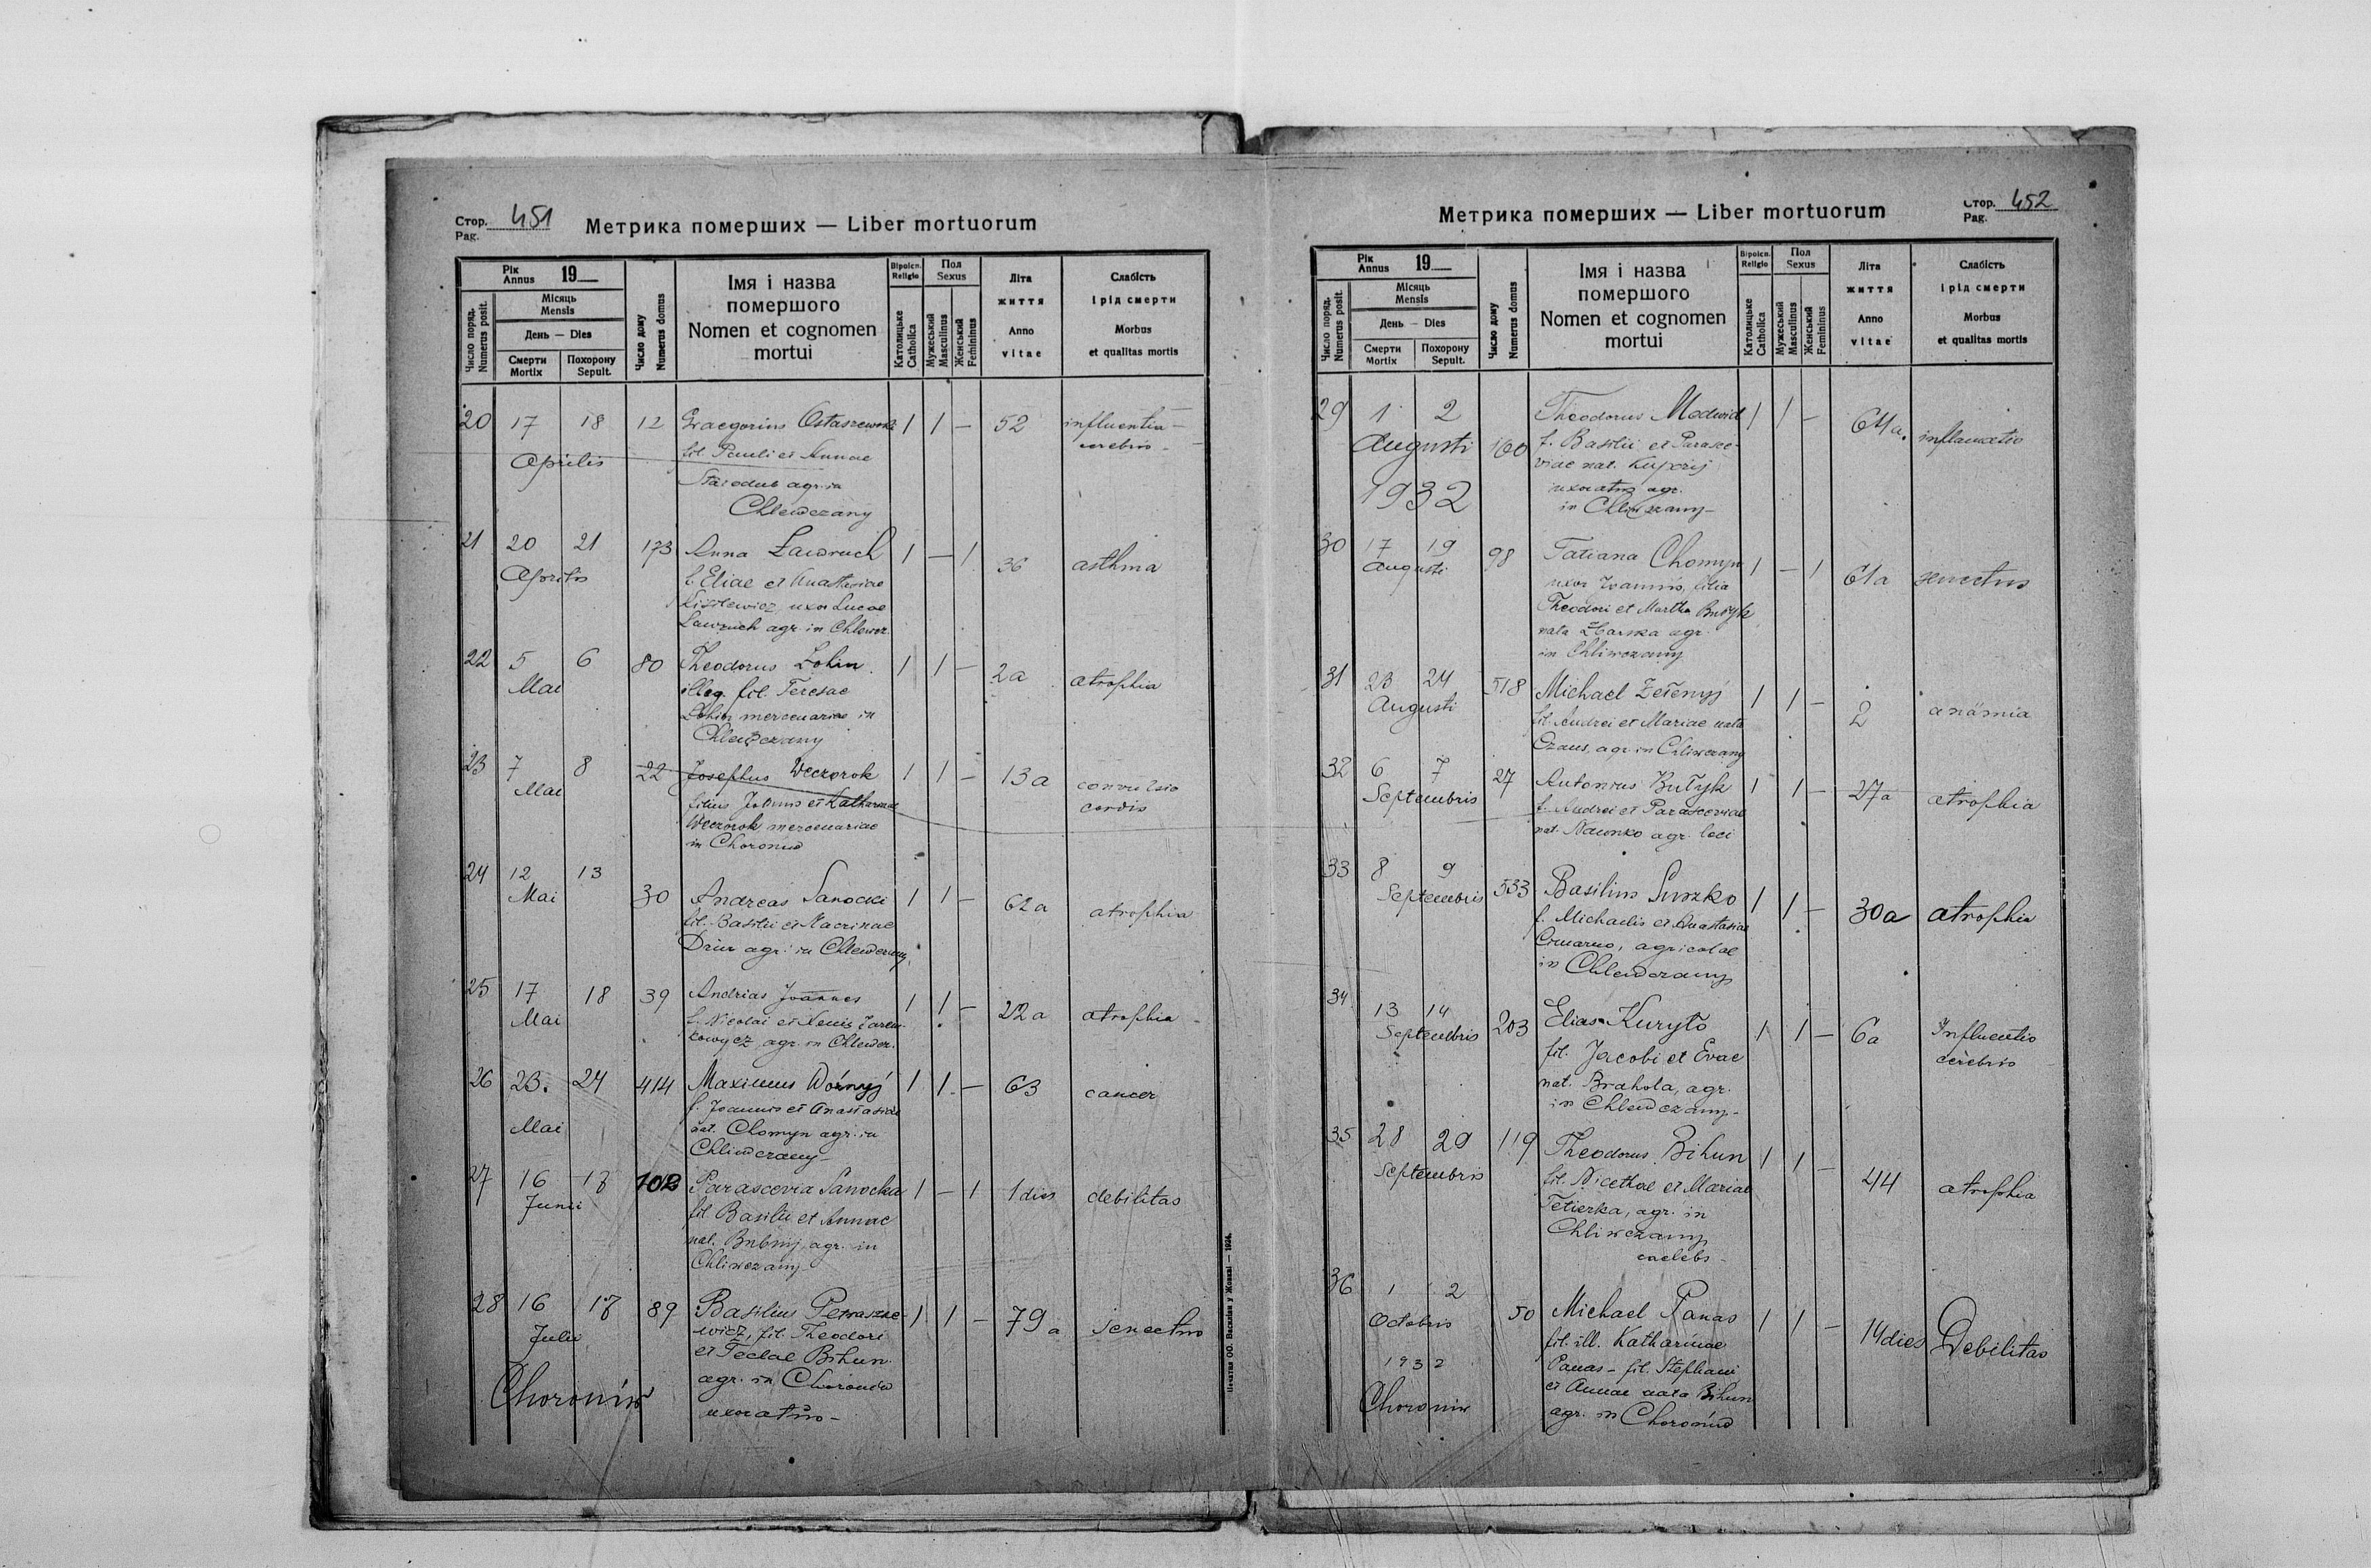 Стор. 451
Pag.
Метрика померших — Liber mortuorum
Рік 19
Annus
Число поряд.
Numerus posit.
Місяць
Mensis
День — Dies
Смерти
Mortix
Похорону
Sepult.
Число дому
Numerus domus
Імя і назва
помершого
Nomen et cognomen
mortui
Віроісп.
Religio
Католицьке
Catholica
Пол
Sexus
Мужеський
Masculinus
Женський
Femininus
Літа
життя
Anno
vitae
Слабість
і рід смерти
Morbus
et qualitas mortis
20 17 18 12 Graegorius Ostaszewski 1 1 — 52 influentia
Aprilis fil. Pauli et Annae cerebris
Starodub agr. in
Chlewczany
21 20 21 173 Anna Ławruch 1 — 1 36 asthma
Aprilis f. Eliae et Anastasiae
uxor Lucae
Ławruch agr. in Chlewcz.
22 5 6 80 Theodorus Łohin 1 1 — 2a atrophia
Mai illeg. fil. Teresae
Łohin mercenariae in
Chlewczany
23 7 8 22 Josephus Weczorok 1 1 — 13a convulsio
Mai filius Joannis et Katharinae cordis
Weczorok mercenariae
in Choroniw
24 12 13 30 Andreas Sanocki 1 1 — 62a atrophia
Mai fil. Basilii et Macrinae
agr. in Chlewczany
25 17 18 39 Andrias Joannes 1 1 — 22a atrophia
Mai f. Nicolai et Xeniz
agr. in Chlewcz.
26 23. 24 414 Maximus Wóźnyj 1 1 — 63 cancer
Mai f. Joannis et Anastasiae
nat. Chomyn agr. in
Chliwczany
27 16 18 102 Parascevia Sanocka 1 — 1 1 dies debilitas
Junii fil. Basilii et Annae
nat. Bubnij agr. in
Chliwczany
28 16 18 89 Basilius Petrasze- 1 1 — 79a senectus
Julii wicz, fil. Theodori
et Teclae Bihun
agr. in Choroniw
Choroniw uxoratus
Печатня ОО. Василіян у Жовкві — 1924.
Метрика померших — Liber mortuorum
Стор. 452
Pag.
Рік 19
Annus
Число поряд.
Numerus posit.
Місяць
Mensis
День — Dies
Смерти
Mortix
Похорону
Sepult.
Число дому
Numerus domus
Імя і назва
помершого
Nomen et cognomen
mortui
Віроісп.
Religio
Католицьке
Catholica
Пол
Sexus
Мужеський
Masculinus
Женський
Femininus
Літа
життя
Anno
vitae
Слабість
і рід смерти
Morbus
et qualitas mortis
29 1 2 160 Theodorus Medwid 1 1 — 64a. inflamatio
Augusti f. Basilii et Parasce-
1932 viae nat.
uxoratus agr.
in Chliwczany
30 17 19 98 Tatiana Chomyn 1 — 1 61a senectus
Augusti uxor Joannis, filia
Theodori et Martha Butyk
nata Zbarska agr.
in Chliwczany
31 23 24 518 Michael Zełenyj 1 1 — 2 anämia
Augusti fil. Andrei et Mariae nata
Czaus, agr. in Chliwczany
32 6 7 27 Antonius Butyk 1 1 — 27a atrophia
Septembris f. Andrei et Parasceviae
nat. Naumko agr. loci
33 8 9 533 Basilius Suszko 1 1 — 30a atrophia
Septembris f. Michaelis et Anastasiae
agricolae
in Chlewczany
34 13 14 203 Elias Kuryło 1 1 — 6a Influentio
Septembris fil. Jacobi et Evae cerebris
nat. Brahola, agr.
in Chlewczany
35 28 29 119 Theodorus Bihun 1 1 — 44 atrophia
Septembris fil. Nicethae et Mariae
Tetierka, agr. in
Chliwczany
caelebs
36 1 2 50 Michael Panas 1 1 — 14 dies Debilitas
Octobris fil. ill. Katharinae
1932 Panas — fil. Stephani
et Annae nata Bihun
Choroniw agr. in Choroniw